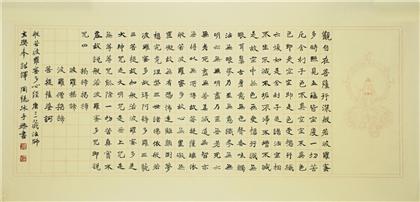 觀自在菩薩行深般若波羅蜜
多時照見五蘊皆空度一切苦
厄舍利子色不異空空不異色
色即是空空即是色受想行識
亦復如是舍利子是諸法空相
不生不滅不垢不淨不增不減
是故空中無色無受想行識無
眼耳鼻舌身意無色聲香味觸
法無眼界乃至無意識界無無
明亦無無明盡乃至無老死亦
無老死盡無苦集滅道無智亦
無得以無所得故菩提薩埵依
般若波羅蜜多故心無罣礙無
罣礙故無有恐怖遠離顛倒夢
想究竟涅槃三世諸佛依般若
波羅蜜多故得阿耨多羅三藐
三菩提故知般若波羅蜜多是
大神咒是大明咒是無上咒是
無等等咒能除一切苦真實不
虛故說般若波羅蜜多咒即說
咒曰
揭諦揭諦
波羅揭諦
波羅僧揭諦
菩提薩婆訶
般若波羅蜜多心經 唐三藏法師
玄奘奉詔譯 書